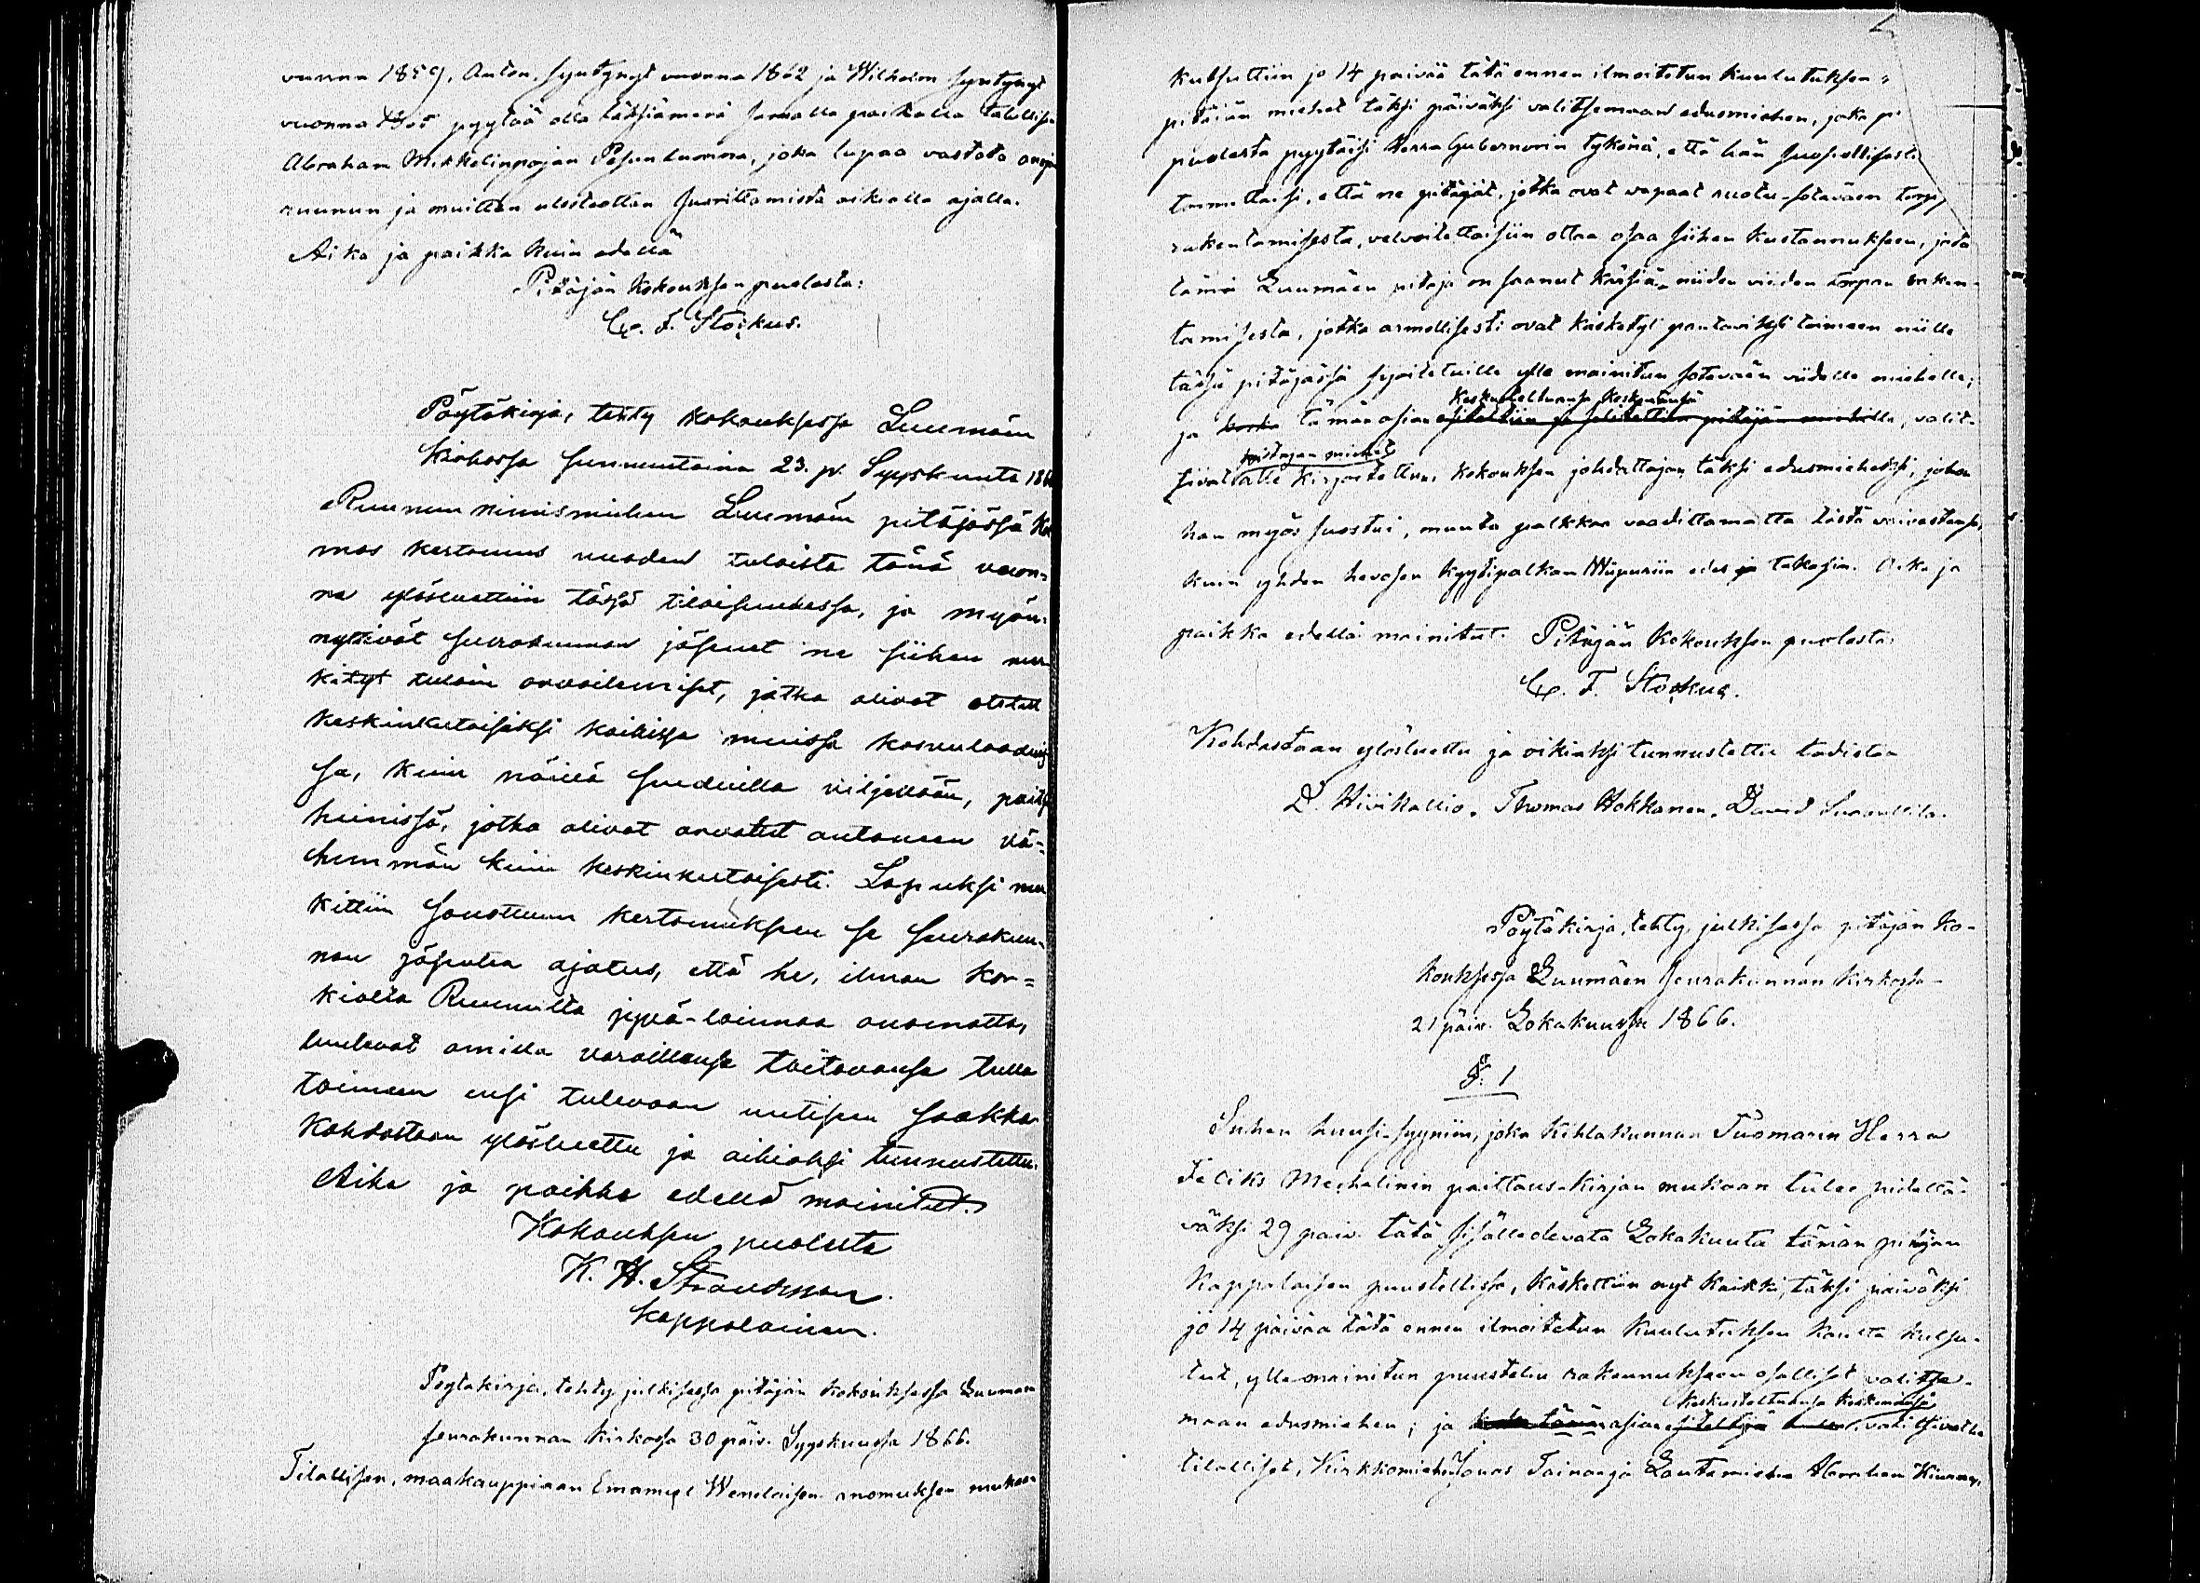 vuonna 1859, Anton, syntynyt vuonna 1862 ja Wilhelm syntynyt
vuonna pyytää olla samalla paikalla talollisen
Abraham Mikkelinpojan luonna, joka lupaa vastata
ruunun ja muitten ulostekoitten suorittamista oikialla ajalla.
Aika ja paikka kuin edellä
Pitäjän kokouksen puolesta:
C. F. Stockus.
Pöytäkirja, tehty kokouksessa Luumäen
kirkossa sunnuntaina 23. p. Syyskuuta 186
Ruunun nimismiehen Luumäen pitäjässä
mas kertomus vuoden tuloista tänä vuon=
na ylösluettiin tässä tilaisuudessa, ja myön=
nyttivät seurakunnan jäsenet ne siihen mer
kityt tuloin arvoilemiset, jotka olivat otetut
keskinkertaisiksi kaikissa muissa kasvulaaduis
sa, kuin näillä seuduilla viljellään, paitsi
heinissä, jotka olivat arvatut antaneen vä=
hemmän kuin keskinkertaisesti. Lopuksi mer
kittiin sanottuun kertomukseen se seurakun=
nan jäsenten ajatus, että he, ilman kor=
kialta Ruunulta jyvä-lainaa anomatta,
luulevat omilla varoillansa töitävänsä tulla
toimeen ensi tulevaan uutiseen saakka.
Kohdastaan ylösluettu ja oikiaksi tunnustettu.
Aika ja paikka edellä mainitut.
Kokouksen puolesta
K. H. Strandman.
kappalainen.
Pöytäkirja, tehty julkisessa pitäjän kokouksessa Luumäen
seurakunnan kirkossa 30 päiv. Syyskuussa 1866.
Tilallisen, maakauppiaan Emanuel Wenelaisen anomuksen mukaan
kutsuttiin jo 14 päivää tätä ennen ilmoitetun kuulutuksen
pitäjän miehet täksi päiväksi valitsemaan edusmiehen, joka
puolesta pyytäisi Herra Gubernörin tykönä, että hän suosollisesti
toimittaisi, että ne pitäjät, jotka ovat vapaat ruotu-sotaväen torp
rakentamisesta, velvoitettaisiin ottaa osaa siihen kustannukseen, jota
tämä Luumäen pitäjä on saanut kärsiä niiden viiden torpan raken-
tamisesta, jotka armollisesti ovat käsketyt pantaviksi toimeen niille
tässä pitäjässä sijoitetuille ylle mainitun sotaväen viidelle miehelle;
Keskusteltuansa keskenänsä
ja koska tämän asian esitettiin ja selitettiin pitäjän miehille, valit-
pitäjän miehet
sivat alle kirjoitettun, kokouksen johdattajan, täksi edusmieheksi, johon
hän myös suostui, muuta palkkaa vaadittamatta tästä vaivastansa,
kuin yhden hevosen kyytipalkan Wiipuriin edes ja takasin. Aika ja
paikka edellä mainitut. Pitäjän kokouksen puolesta:
C. F. Stockus.
Kohdastaan ylösluettu ja oikiaksi tunnustettu todistaa
D. Hiivikallio. Thomas Hokkanen. David
Pöytäkirja, tehty julkisessa pitäjän ko-
kouksessa Luumäen seurakunnan kirkossa
21 päiv. Lokakuussa 1866.
§. 1
Siihen huusi-syyniin, joka kihlakunnan Tuomarin Herra
Feliks Mechelinin paittaus-kirjan mukaan tulee pidettä-
väksi 29 päiv. tätä sisälläolevata Lokakuuta tämän pitäjän
Kappalaisen puustellissa, käskettiin nyt kaikki, täksi päiväksi
jo 14 päivää tätä ennen ilmoitetun kuulutuksen kautta kutsu-
tut, ylle mainitun puustelin rakennukseen osalliset valitse-
Keskusteltuansa keskenänsä
maan edusmiehen; ja tämän asian valitsivat
tilalliset, Kirkkomiehen Jonas Toinanja Lautamiehen Abraham